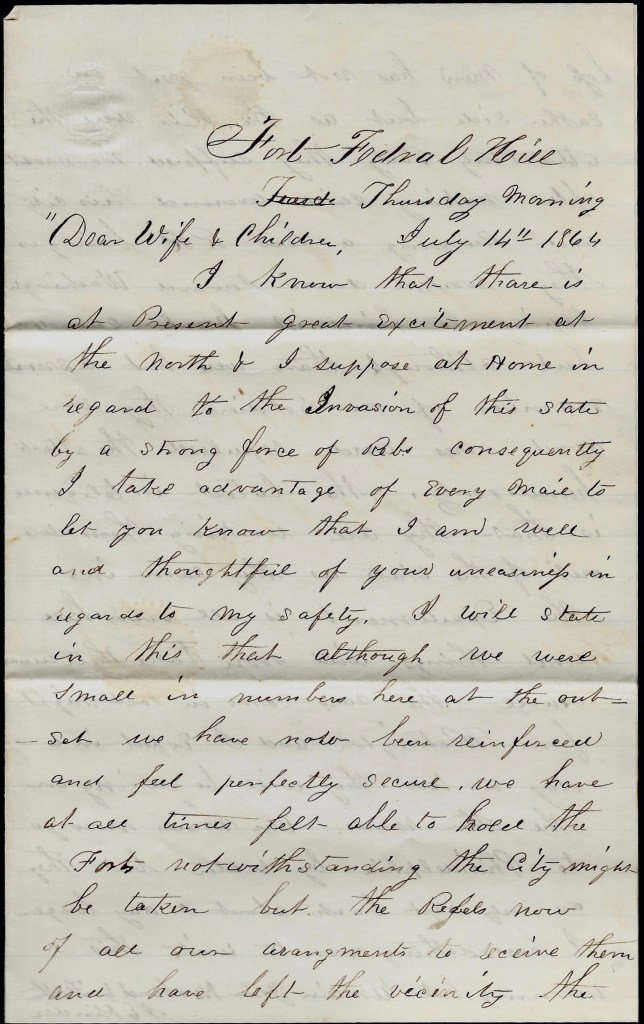 Fort Fedral Hill
Tuesd Thursday Morning
"Dear Wife & Children, July 14th 1864
I know that thare is
at Present great Excitement at
the North & I suppose at Home in
regard to the Invasion of this State
by a strong force of Rebs consequently
I take advantage of Every Mail to
let you know that I am well
and thoughtful of your uneasiness in
regards to My Safety. I will state
in this that although we were
Small in numbers here at the out=
-set we have now been reinforced
and feel perfectly secure, we have
at all times felt able to hold the
Fort notwithstanding the City might
be taken but the Rebels now
of all our arangments to receive them
and have left the vicinity the